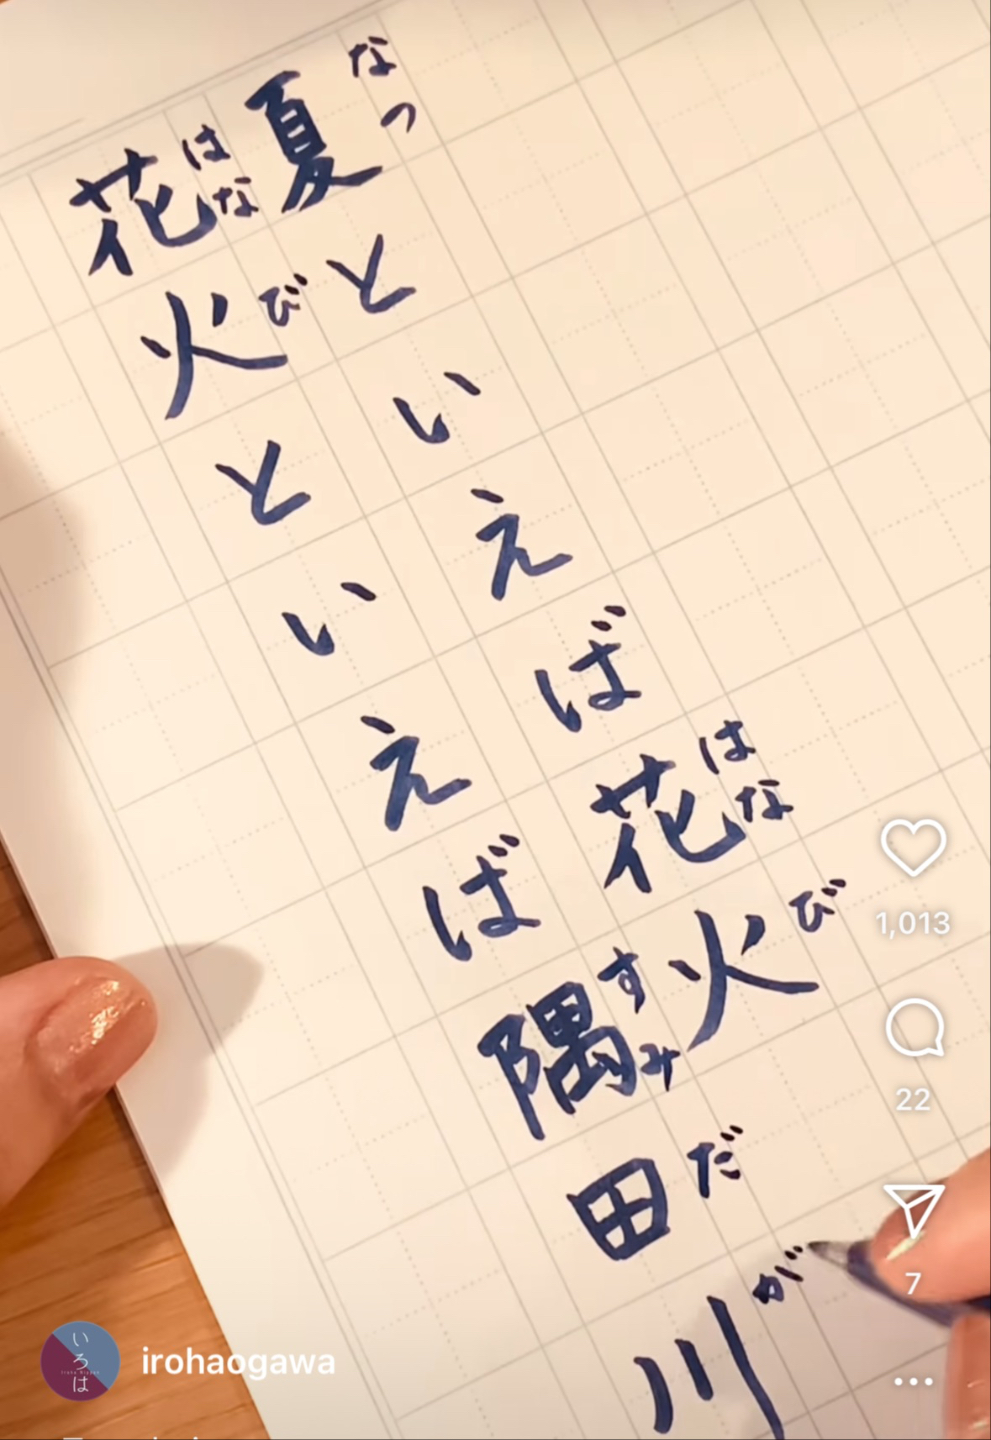 夏といえば花火
なつ
はなび
花火といえば隅田川
はなび
すみだが
1,013
22
7
irohaogawa
いろは